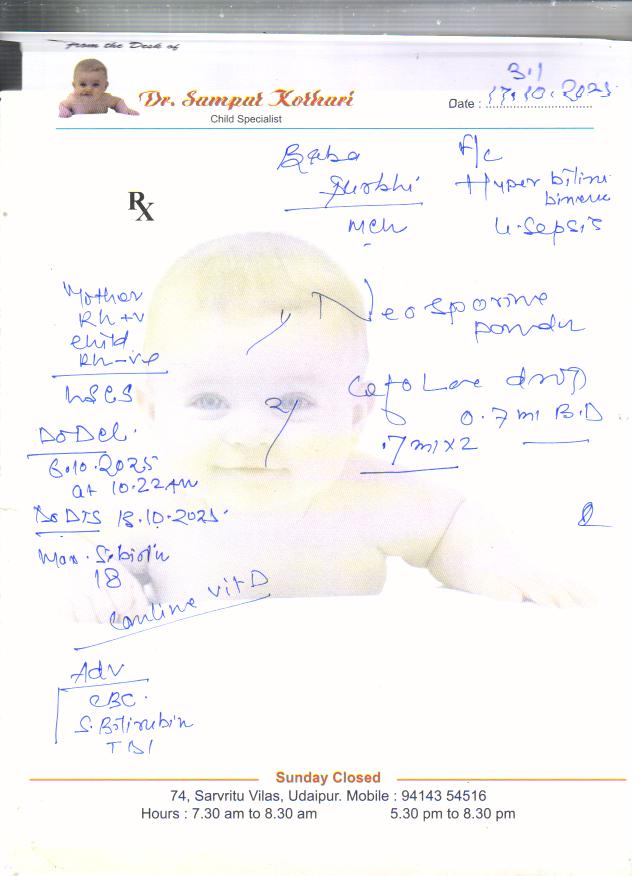 From the Desk of
Dr. Sampat Kothari
Child Specialist
3.1
Date : 17.10.2025
Baba
Surbhi
Mch
F/c
Hyper biliru
binemia
Sepsis
Rx
Mother
Rh +v
child
Rh -ve
LSCS
Do Del.
8.10.2025
at 10.22 AM
Do DIS 18.10.2025
Max. S.bioln
18
1/ Neosporine
powder
2/ drop
0.7 ml B.D
.7 ml x 2
vit D
Adv
CBC.
S. Bilirubin
T D I
Sunday Closed
74, Sarvritu Vilas, Udaipur. Mobile : 94143 54516
Hours : 7.30 am to 8.30 am 5.30 pm to 8.30 pm